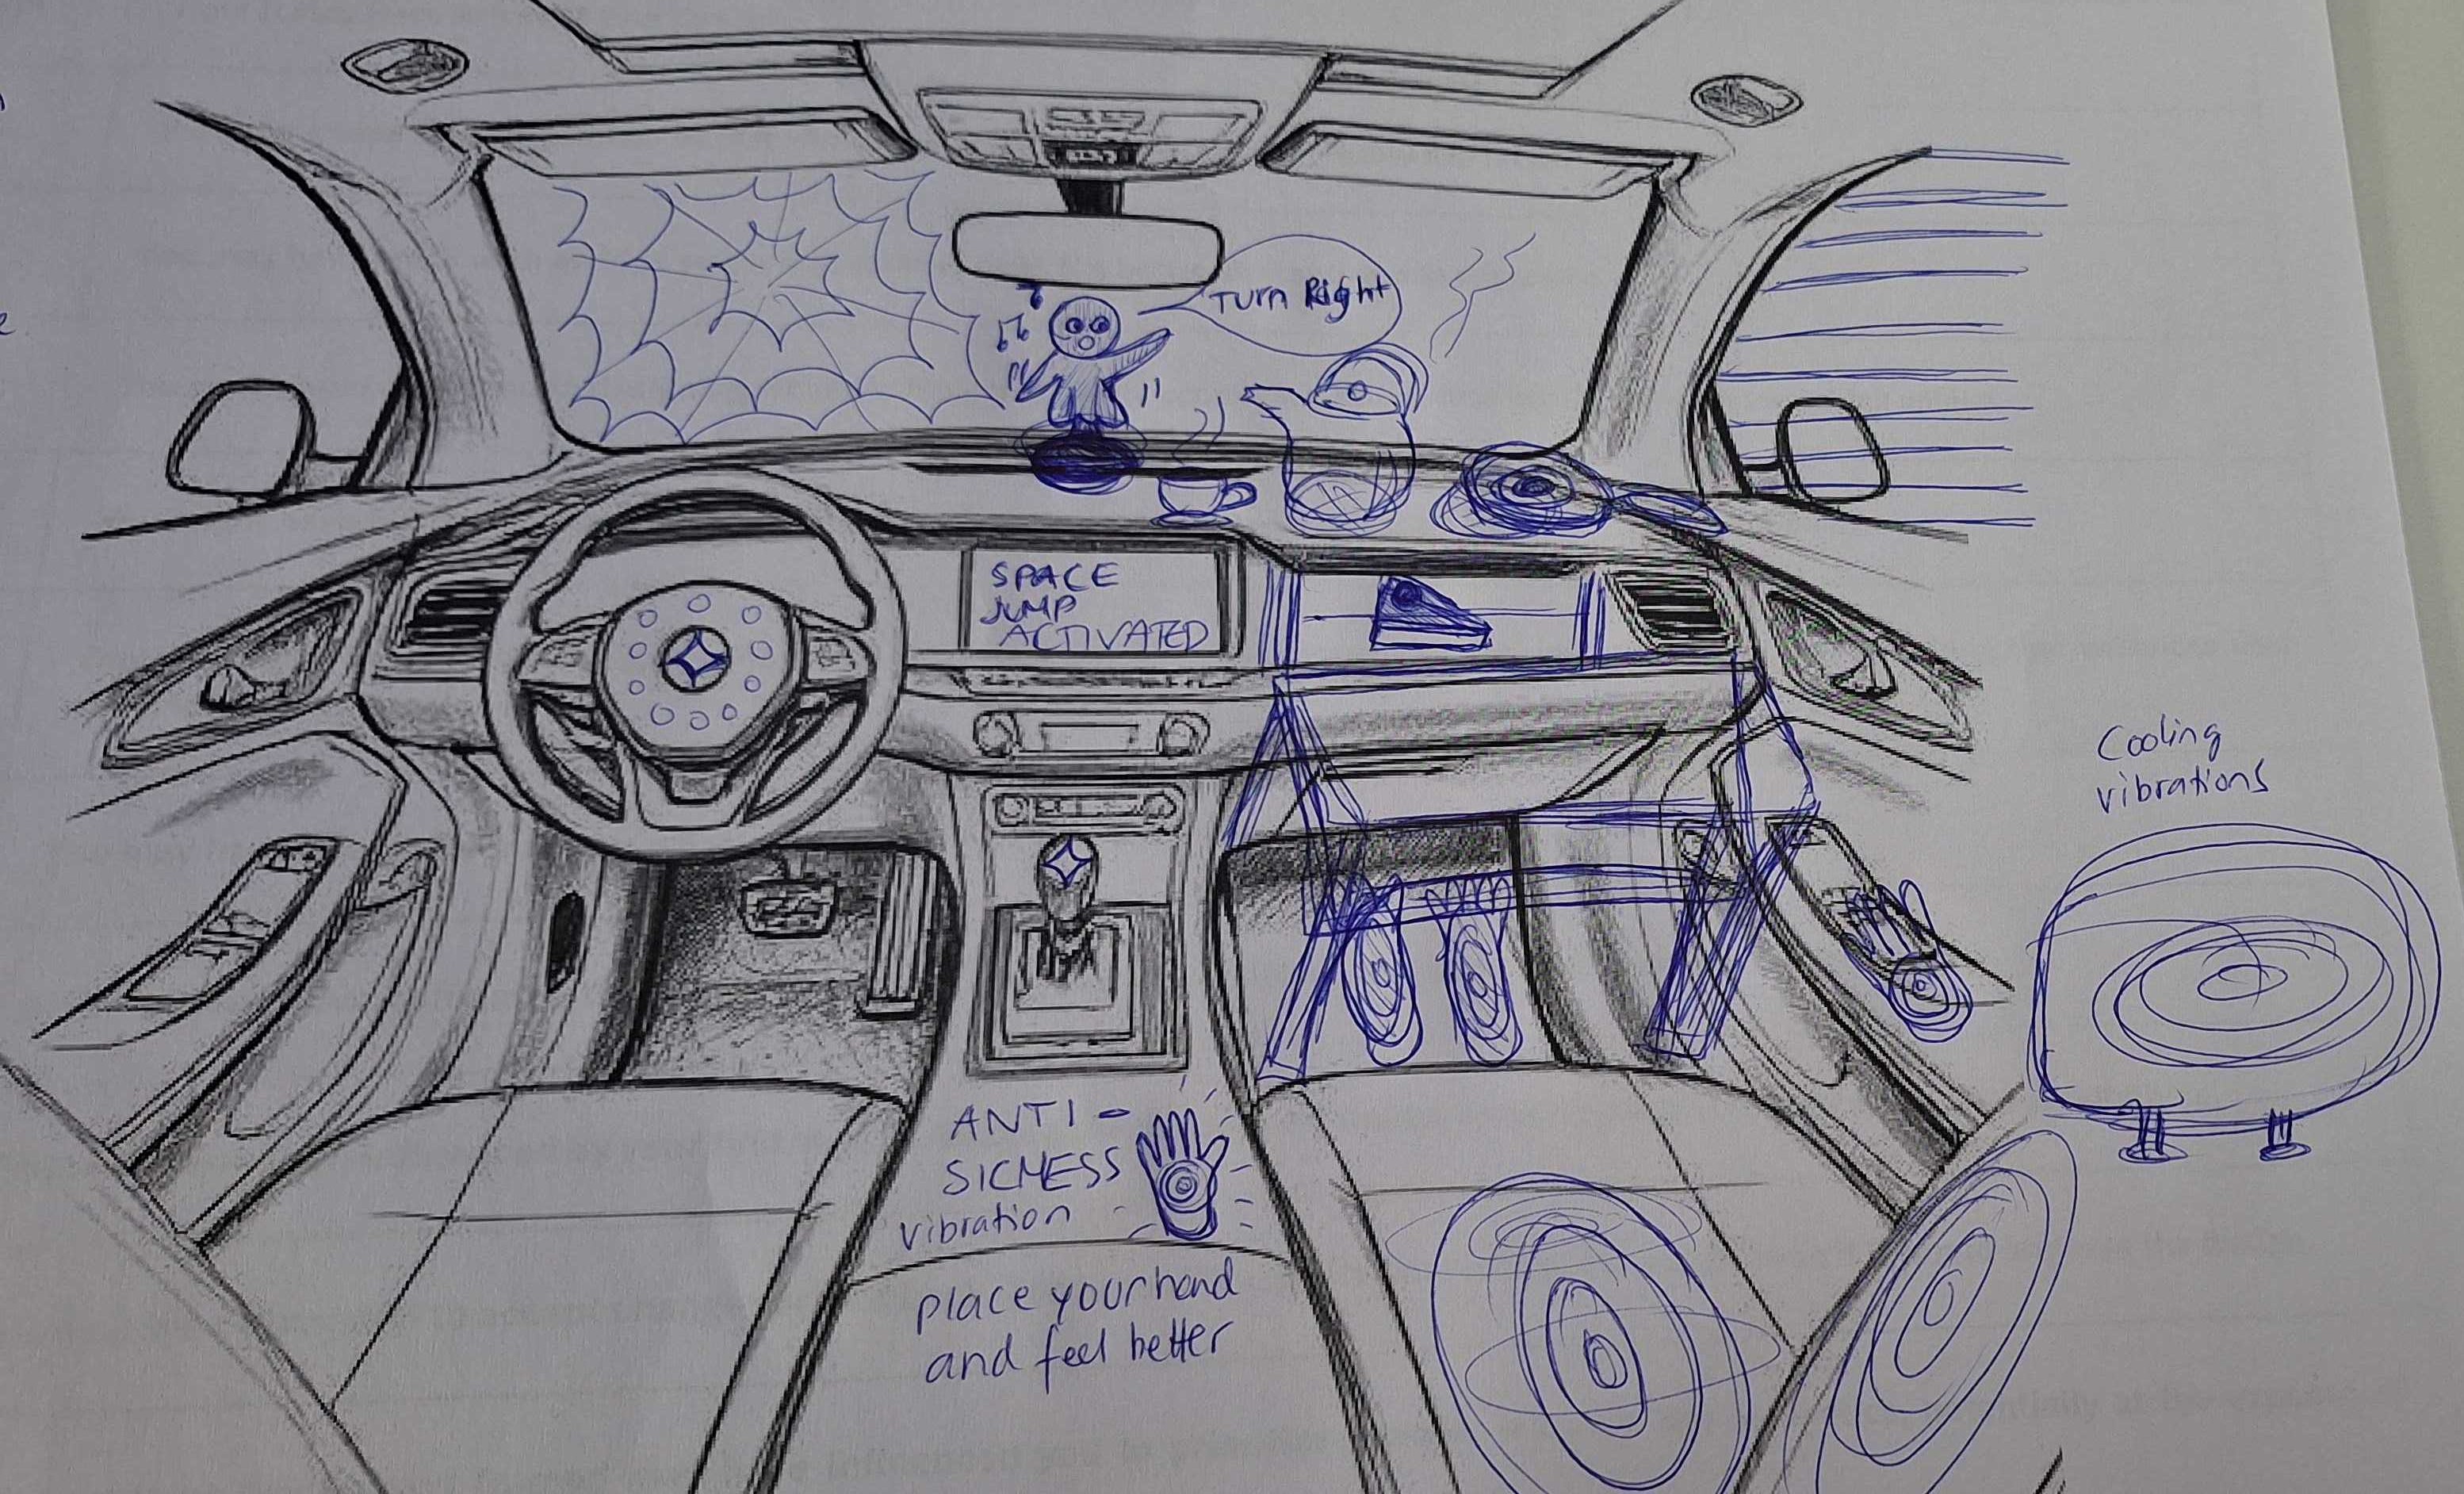 Turn Right
SPACE
JUMP
ACTIVATED
Cooling
vibrations
ANTI-
SICMESS
vibration
place your hand
and feel better